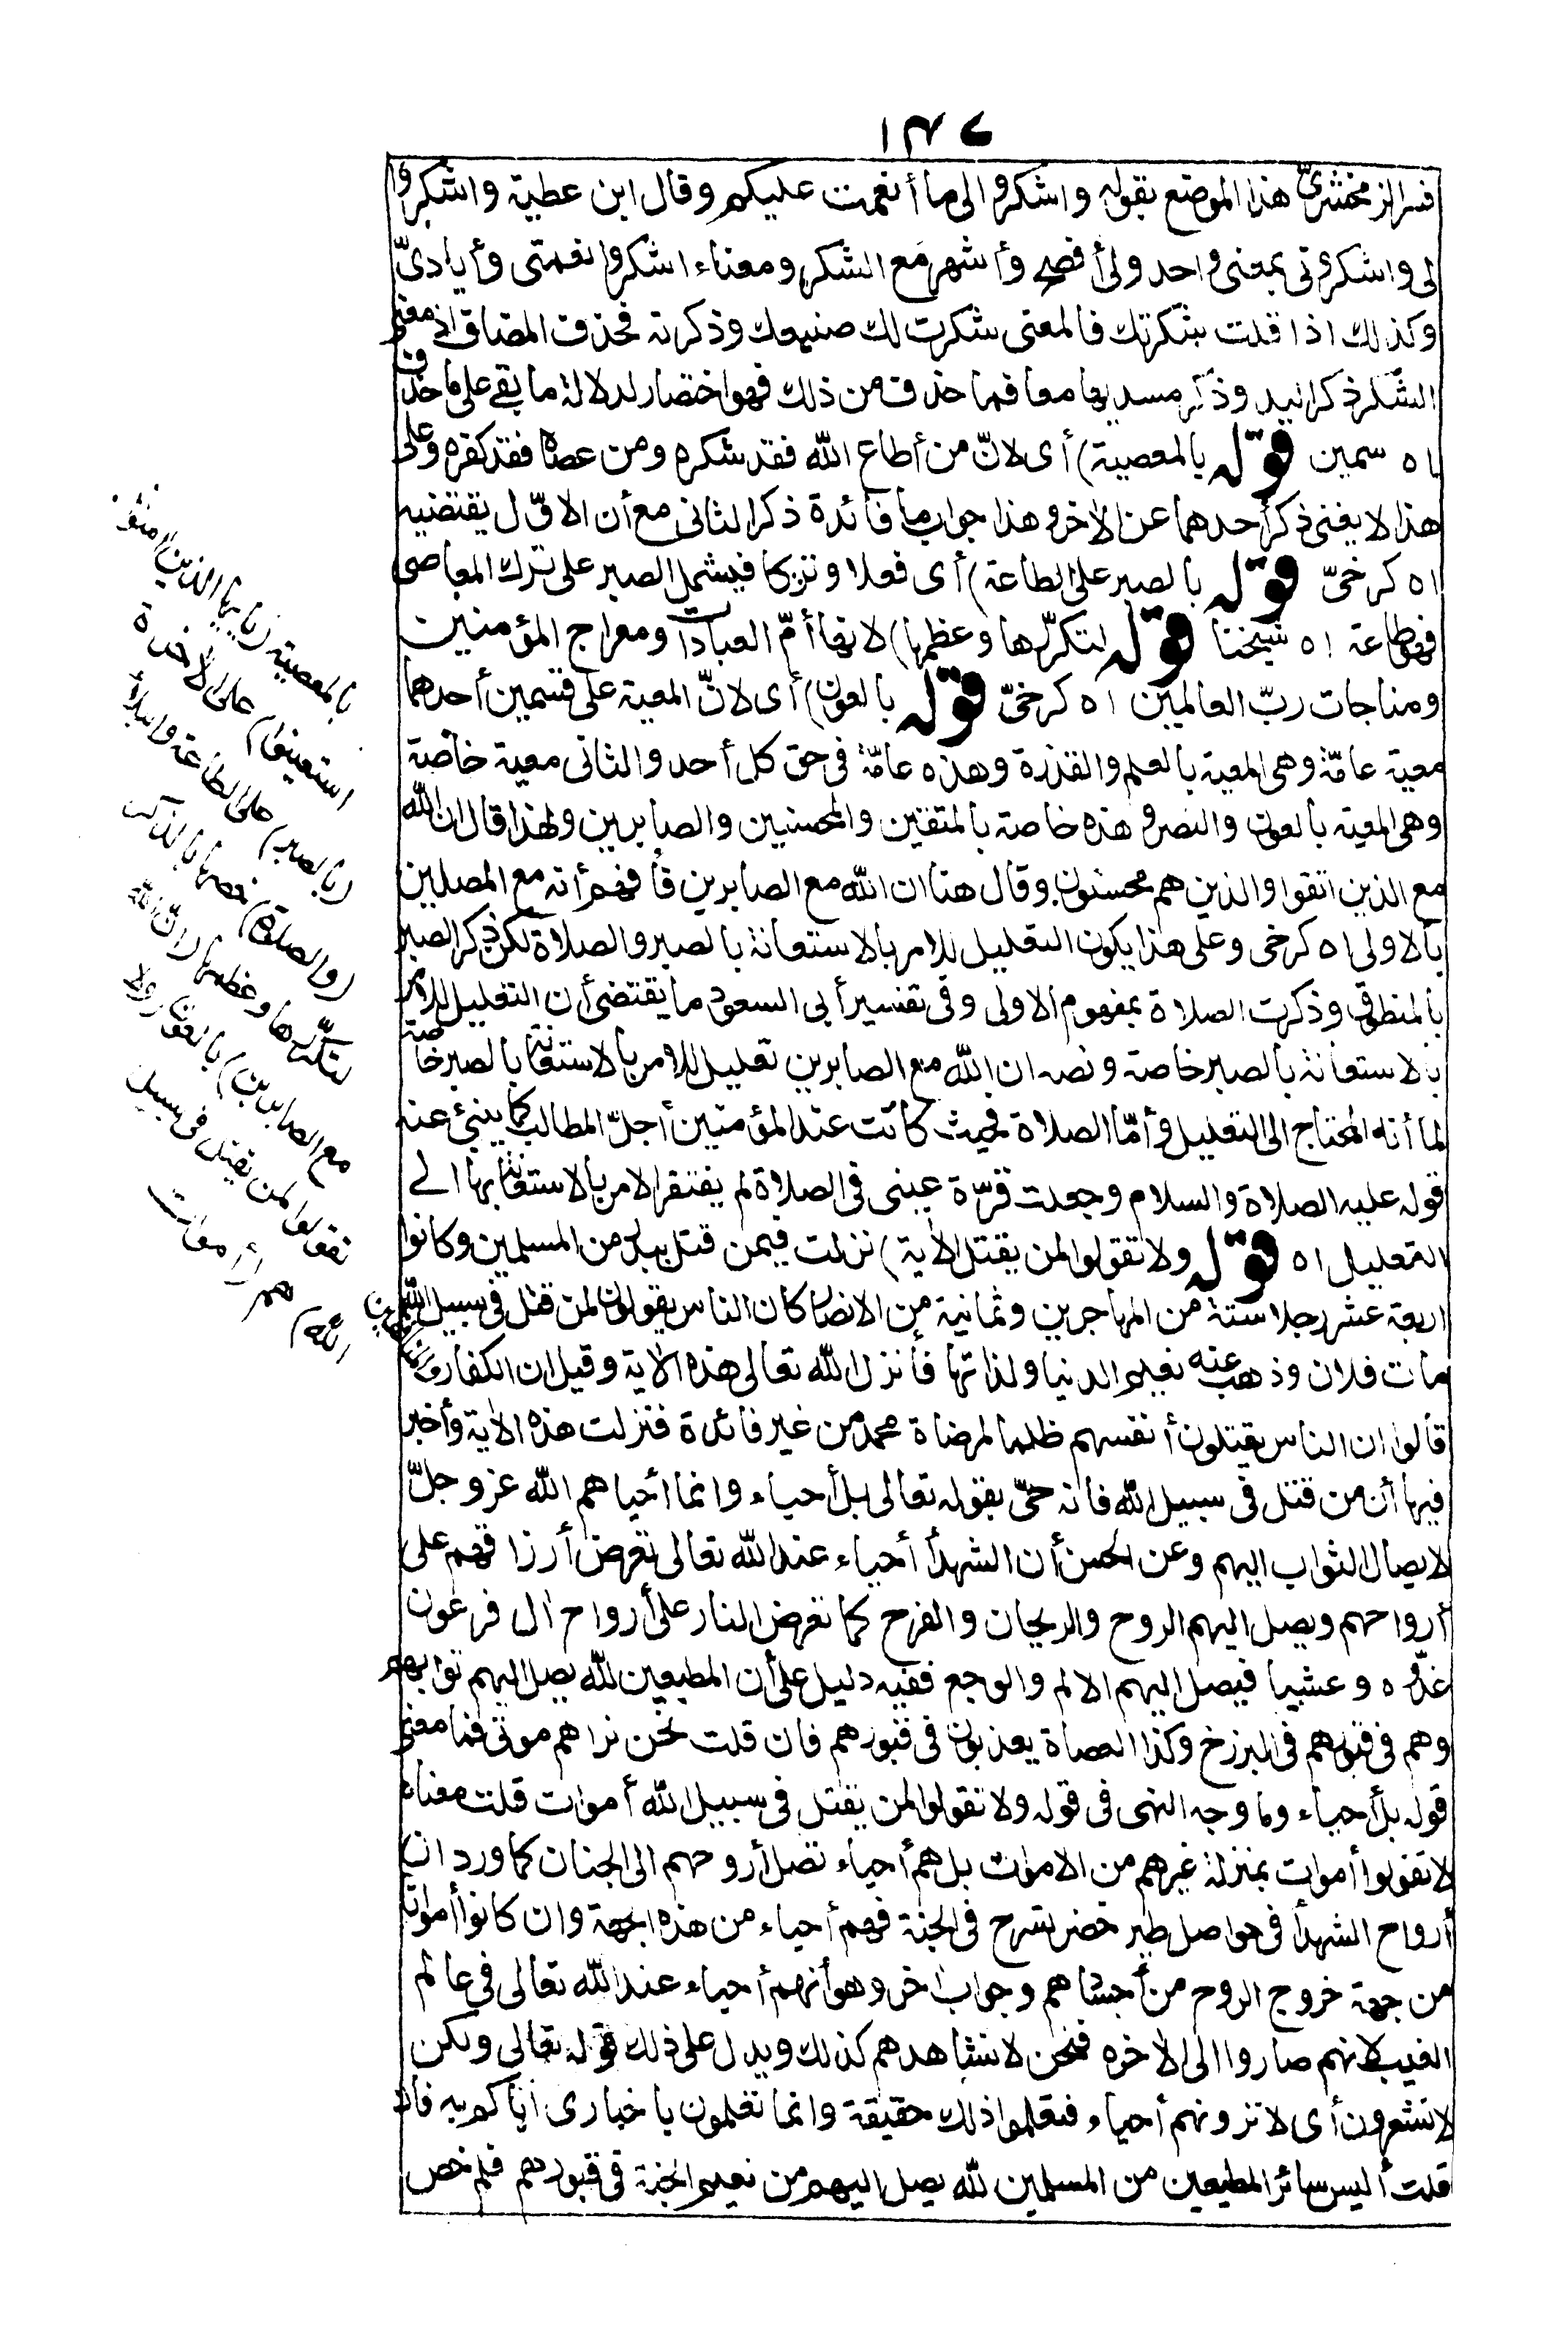 ١٣٧
فسر الزمخشرىّ هذا الموضع بقوله واشكروا لى ما أنعمت عليكم وقال ابن عطية واشكروا
لى واشكرونى بمعنى واحد ولى أفصح وأشهر مع الشكر ومعناه اشكروا نعمتى وأيادىّ
وكذلك اذا قلت شكرتك فالمعنى شكرت لك صنيعك وذكرته فحذف المضاف اذ معنى
الشكر ذكر اليد وذكر مسديها معا فما حذف من ذلك فهو اختصار لدلالة ما بقى على ما حذف
اه سمين قوله بالمعصية) أى لانّ من أطاع الله فقد شكره ومن عصاه فقد كفره وعلى
هذا لا يغنى ذكر أحدهما عن الاخر وهذا جواب ما فائدة ذكر الثانى مع أن الاوّل يقتضيه
اه كرخىّ قوله بالصبر على الطاعة) أى فعلا وتركا فيشمل الصبر على ترك المعاصى
فهو طاعة اه شيخنا قوله لتكرّرها وعظمها) لانها أمّ العبادات ومعراج المؤمنين
ومناجات ربّ العالمين اه كرخىّ قوله بالعون) أى لانّ المعية على قسمين أحدهما
معية عامّة وهى المعية بالعلم والقدرة وهذه عامّة فى حق كل أحد والثانى معية خاصة
وهى المعية بالعون والنصر وهذه خاصة بالمتقين والمحسنين والصابرين ولهذا قال ان الله
مع الذين اتقوا والذين هم محسنون وقال هنا ان الله مع الصابرين فأفهم أنه مع المصلين
بالاولى اه كرخى وعلى هذا يكون التعليل للامر بالاستعانة بالصبر والصلاة لكن ذكر الصبر
بالمنطوق وذكرت الصلاة بمفهوم الاولى وفى تفسير أبى السعود ما يقتضى أن التعليل للامر
بالاستعانة بالصبر خاصة ونصه ان الله مع الصابرين تعليل للامر بالاستعانة بالصبر خاصة
لما أنه المحتاج الى التعليل وأمّا الصلاة فحيث كانت عند المؤمنين أجلّ المطالب كما ينبئ عنه
قوله عليه الصلاة والسلام وجعلت قرّة عينى فى الصلاة لم يفتقر الامر بالاستعانة بها الى
التعليل اه قوله ولا تقولوا لمن يقتل الأية) نزلت فيمن قتل ببدر من المسلمين وكانوا
اربعة عشر رجلا ستة من المهاجرين وثمانية من الانصار كان الناس يقولون لمن قتل فى سبيل الله
مات فلان وذهب عنه نعيم الدنيا ولذاتها فأنزل الله تعالى هذه الاية وقيل ان الكفار والمنافقين
قالوا ان الناس يقتلون أنفسهم ظلما لمرضاة محمد من غير فائدة فنزلت هذه الاية وأخبر
فيها أن من قتل فى سبيل الله فانه حىّ بقوله تعالى بل أحياء وانما أحياهم الله عز وجلّ
لايصال الثواب اليهم وعن الحسن أن الشهدأ أحياء عند الله تعالى تعرض أرزاقهم على
أرواحهم ويصل اليهم الروح والريحان والفرح كما تعرض النار على أرواح ال فرعون
غدوّه وعشيا فيصل اليهم الالم والوجع ففيه دليل على أن المطيعين لله يصل اليهم ثوابهم
وهم فى قبورهم فى البرزخ وكذا العصاة يعذبون فى قبورهم فان قلت نحن نراهم موتى فما معنى
قوله بل أحياء وما وجه النهى فى قوله ولا تقولوا لمن يقتل فى سبيل الله أموات قلت معناه
لا تقولوا أموات بمنزلة غيرهم من الاموات بل هم أحياء تصل أروحهم الى الجنان كما ورد ان
أرواح الشهدأ فى حواصل طير خضر تسرح فى الجنة فهم أحياء من هذه الجهة وان كانوا أمواتا
من جهة خروج الروح من أجسادهم وجواب اخر وهو أنهم أحياء عند الله تعالى فى عالم
الغيب لانهم صاروا الى الاخره فنحن لا نشاهدهم كذلك ويدل على ذلك قوله تعالى ولكن
لا تشعرون أى لا ترونهم أحياء فتعلموا ذلك حقيقة وانما تعلمون باخبارى اياكم به فان
قلت أليس سائر المطيعين من المسلمين لله يصل اليهم من نعيم الجنة فى قبورهم فلم خص
بالمعصية (يايها الذين امنوا
استعينوا) على الأخرة
(بالصبر) على الطاعة والبلاء
(والصلاة) خصها بالذكر
لتكرّرها وعظمها (ان الله
مع الصابرين) بالعون (ولا
تقولوا لمن يقتل فى سبيل
الله) هم (أموات